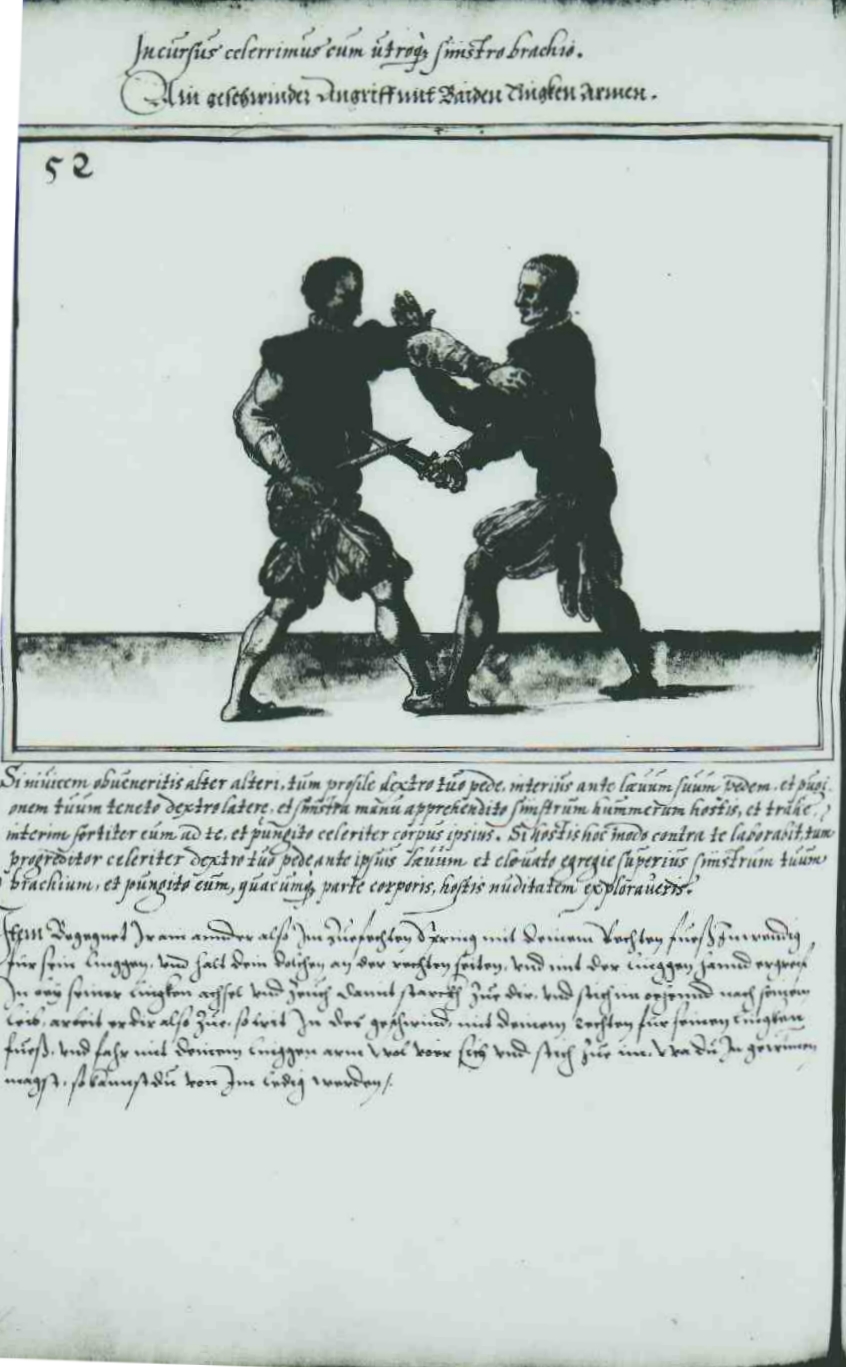 Incursus celerrimus cum utroq₃ sinistro brachio.
Ain geschwinder Angriff mit Baiden Lingken Armen.
52
Si invicem obveneritis alter alteri, tum prosile dextro tuo pede, interius ante laevum suum pedem, et pugi
onem tuum teneto dextro latere, et sinistra manu apprehendito sinistrum hummerum hostis, et trahe
interim fortiter eum ad te, et pungito celeriter corpus ipsius. Si hostis hoc modo contra te laborabit tum
progreditor celeriter dextro tuo pede ante ipsius laevum et elevato egregie superius sinistrum tuum
brachium, et pungito eum, quacumq₃ parte corporis, hostis nuditatem exploraveris.
Item Begegnet Ir ain annder also Im Zuefechten mit deinem Rechten fuess Inwendig
für sein Linggen, und halt dein dolchen an der rechten seiten, und mit der Linggen hannd ergreif
In bey seiner Lingken achsel und Zeuch damit starckh Zue dir, und stich im nach seinem
Leib, arbeit er dir also Zue, so trit In des geschwind mit deinem Rechten für seinen Lingken
fuess, und fahr mit deinem Linggen arm wol uber sich und stich Zue im, wa du In gewinnen
magst, so kannst du von Im ledig werden.